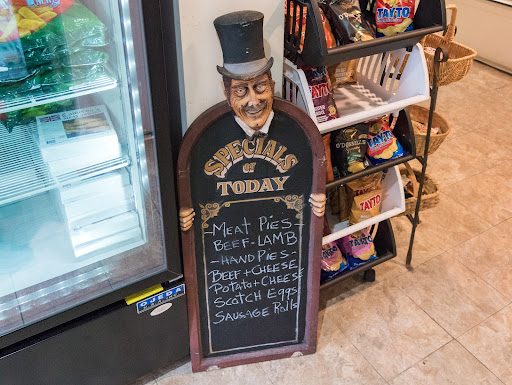 SPECIALS
OF
TODAY
-MEAT PIES-
BEEF-LAMB
-HANDPIES-
BEEF+CHEESE
POTATO+CHEESE
SCOTCH EGGS
SAUSAGE ROLLS
TAYTO
TAYTO
TAYTO
O'DONNELLS
TAYTO
TAYTO
TAYTO
OJEDA